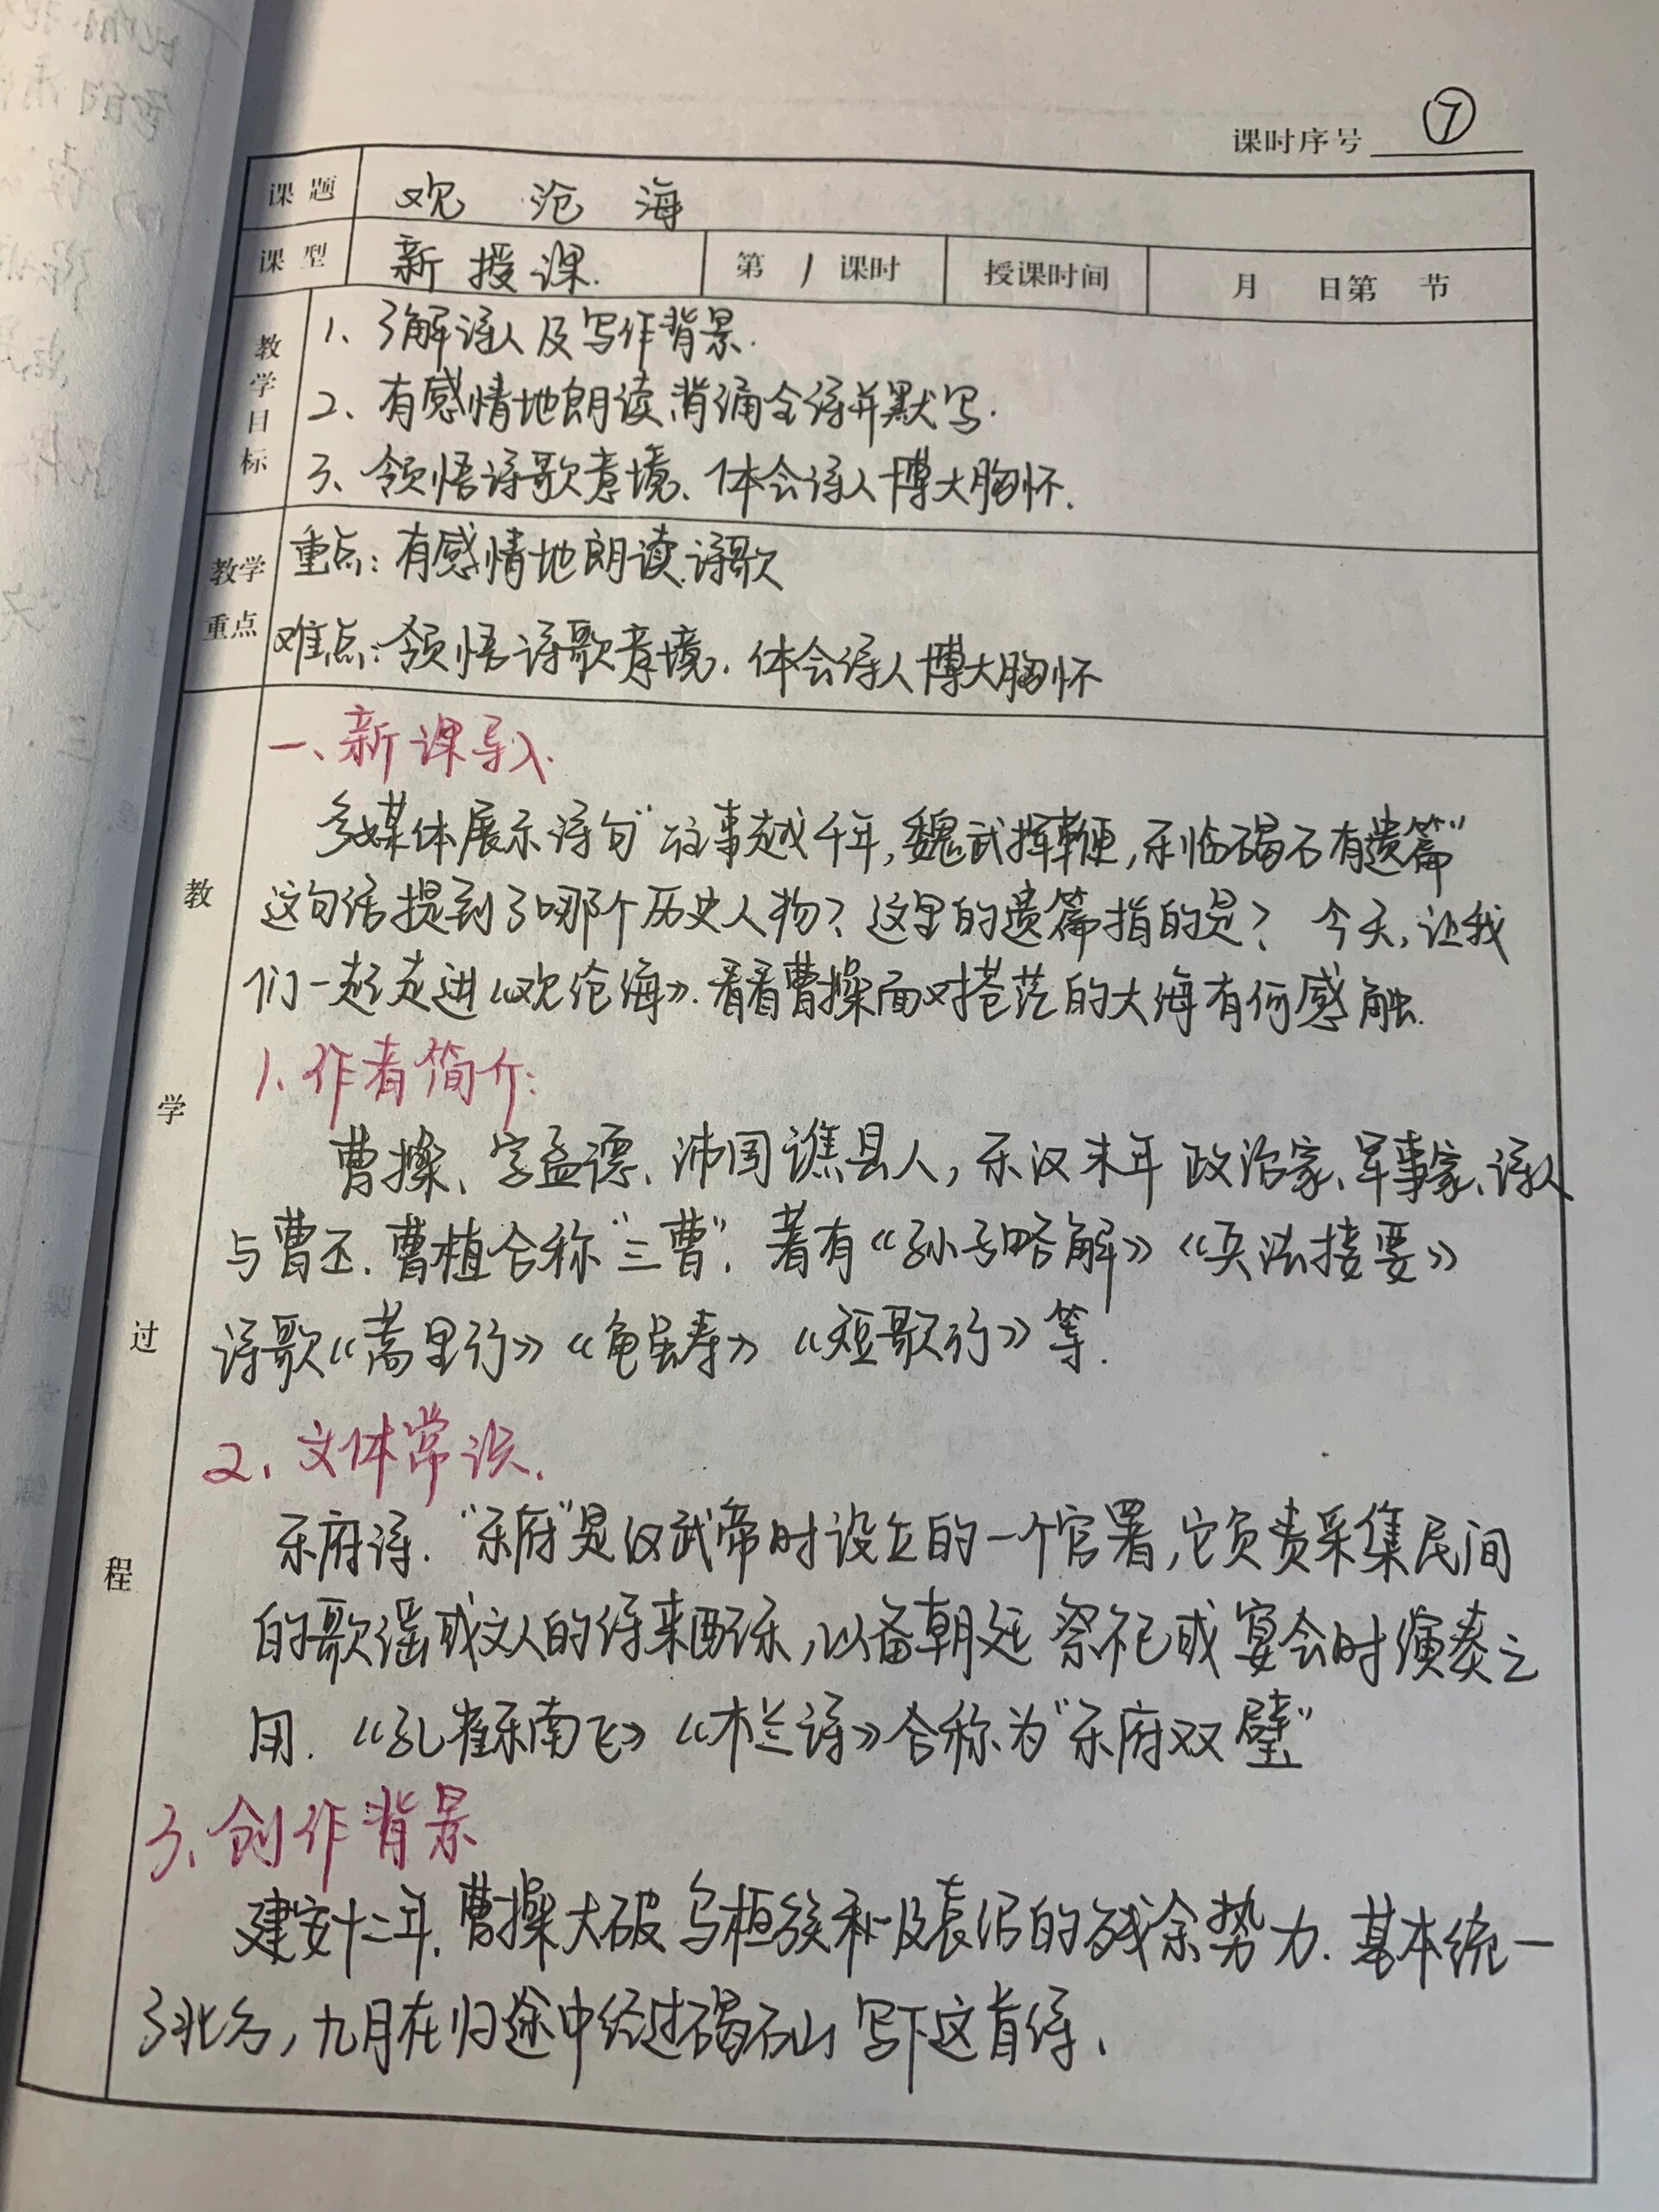 课时序号 ⑦
课题 观沧海
课型 新授课. 第 1 课时 授课时间 月 日第 节
教学目标
1、了解诗人及写作背景.
2、有感情地朗读,背诵全诗并默写.
3、领悟诗歌意境、体会诗人博大胸怀.
教学重点
重点：有感情地朗读诗歌
难点：领悟诗歌意境、体会诗人博大胸怀
教学过程
一、新课导入.
多媒体展示诗句“往事越千年,魏武挥鞭,东临碣石有遗篇”
这句话提到了哪个历史人物？这里的遗篇指的是？今天,让我
们一起走进《观沧海》.看看曹操面对苍茫的大海有何感触.
1、作者简介：
曹操、字孟德、沛国谯县人,东汉末年政治家、军事家、诗人
与曹丕.曹植合称“三曹”.著有《孙子略解》《兵法接要》
诗歌《蒿里行》《龟虽寿》《短歌行》等.
2、文体常识.
乐府诗.“乐府”是汉武帝时设立的一个官署,它负责采集民间
的歌谣或文人的诗来配乐,以备朝廷祭祀或宴会时演奏之
用.《孔雀东南飞》《木兰诗》合称为“乐府双璧”
3、创作背景
建安十二年.曹操大破乌桓族和及袁绍的残余势力.基本统一
了北方,九月在归途中经过碣石山写下这首诗.